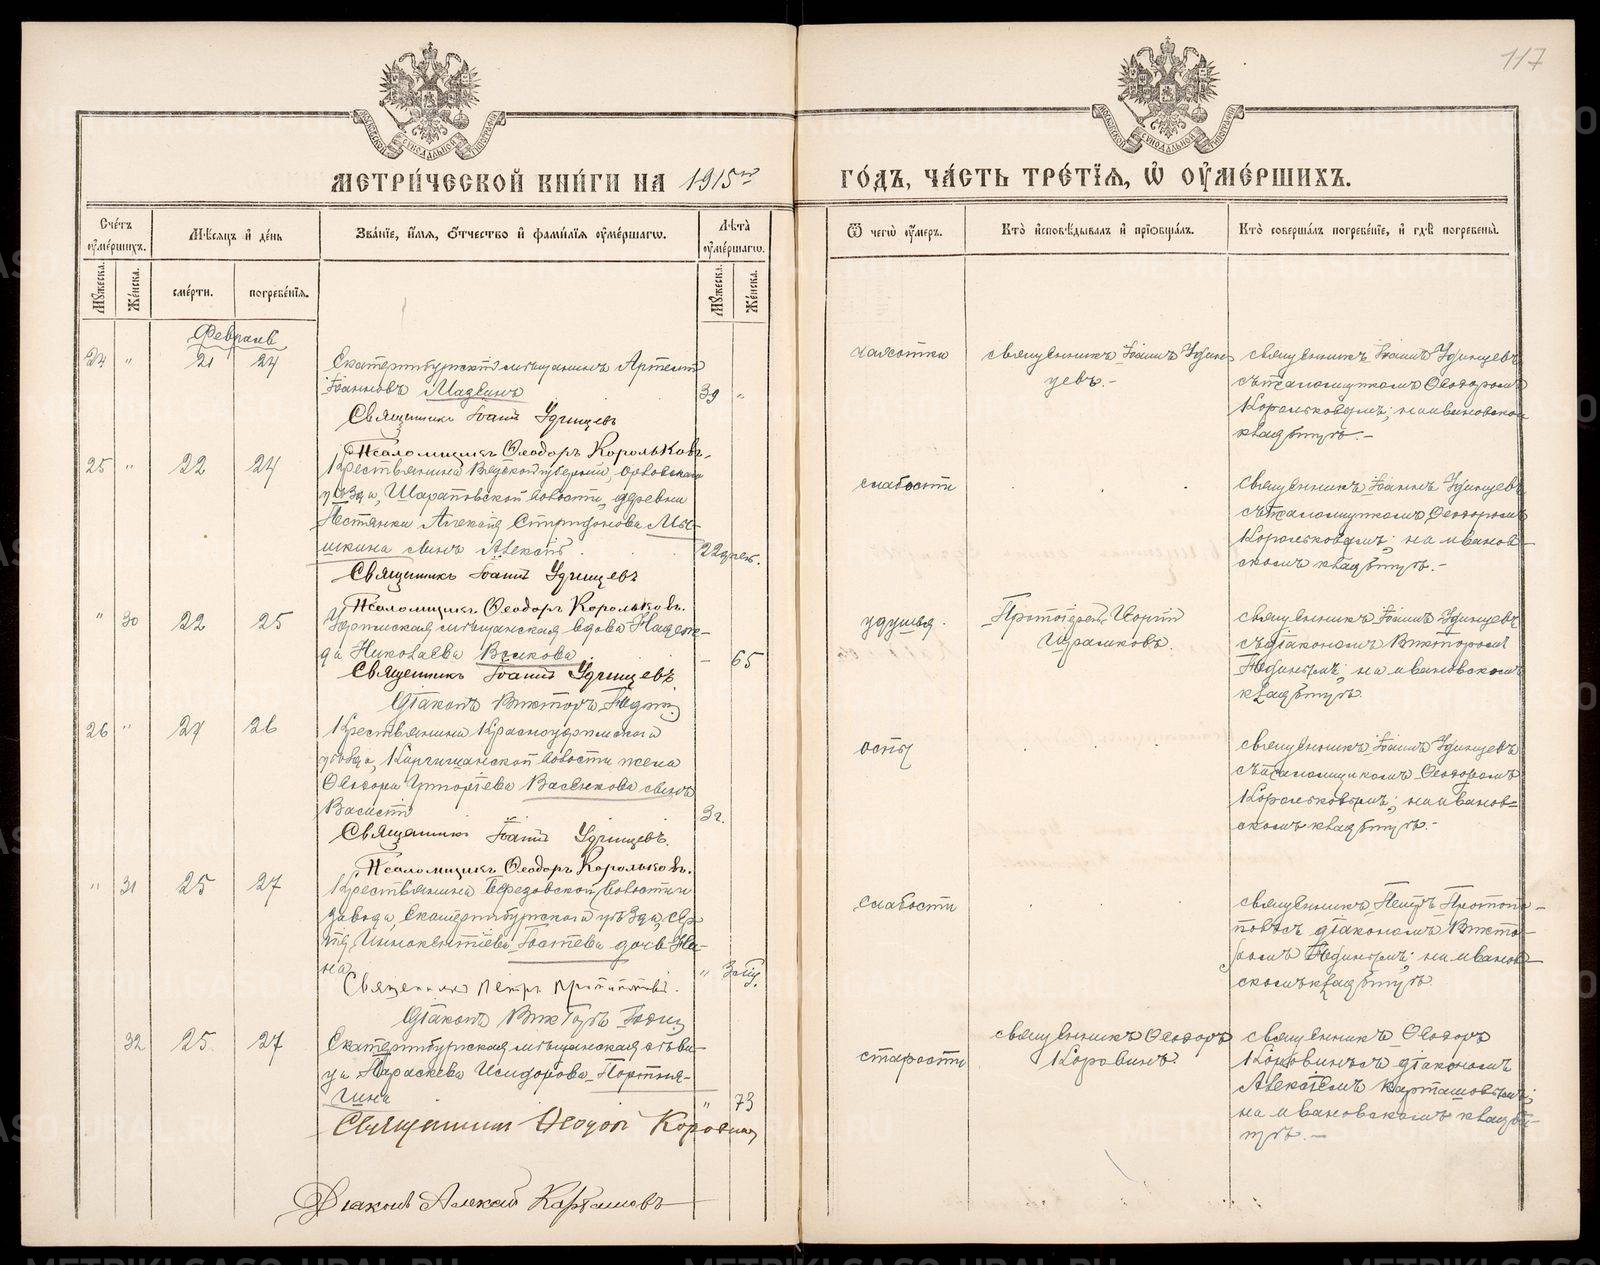 117
МЕТРИ́ЧЕСКОЙ КНИ́ГИ НА 1915й
ГО́ДЪ, ЧА́СТЬ ТРЕ́ТІЯ, Ѿ ОУ҆МЕ́РШИХЪ.
Сче́тъ оу҆ме́ршихъ.
Мѣ́сяцъ и҆ де́нь
Зва́ніе, и҆́мя, ѻ҆́тчество и҆ фами́лія оу҆ме́ршагѡ.
Лѣ́та оу҆ме́ршагѡ.
Ѿ чегѡ̀ оу҆́меръ.
Кто̀ и҆сповѣ́дывалъ и҆ прїѻбща́лъ.
Кто̀ соверша́лъ погребе́ніе, и҆ гдѣ̀ погребены̀.
Му́жеска.
Же́нска.
сме́рти.
погребе́нія.
Му́жеска.
Же́нска.
Февраль
24 " 21 24
Екатеринбургскій мѣщанинъ Артемій
Іоанновъ
39 "
Священникъ Іоаннъ Удинцевъ
Псаломщикъ Ѳеодоръ Корольковъ.
чахотки
священникъ Іоаннъ Удин-
цевъ.-
священникъ Іоаннъ Удинцевъ
съ псаломщикомъ Ѳеодоромъ
Корольковымъ; на ивановскомъ
кладбищѣ.-
25 " 22 24
Крестьянина Вятской губерніи, Орловскаго
уѣзда, Шараповской волости, деревни
Пестянки Алексѣя Спиридонова Мы-
шкина сынъ Алексѣй.
22 дней.
Священникъ Іоаннъ Удинцевъ
Псаломщикъ Ѳеодоръ Корольковъ.
слабости
священникъ Іоаннъ Удинцевъ
съ псаломщикомъ Ѳеодоромъ
Корольковымъ; на иванов-
скомъ кладбищѣ.-
" 30 22 25
мѣщанская вдова Надеж-
да Николаева
- 65
Священникъ Іоаннъ Удинцевъ
Діаконъ Викторъ
удушья.
Протоіерей
священникъ Іоаннъ Удинцевъ
съ діакономъ Викторомъ
на ивановскомъ
кладбищѣ.
26 " 24 26
Крестьянина Красноуфимскаго
уѣзда, волости жена
Ѳеодора Григоріева Васенкова сынъ
Василій
3 г.
Священникъ Іоаннъ Удинцевъ.
Псаломщикъ Ѳеодоръ Корольковъ.
оспы
священникъ Іоаннъ Удинцевъ
съ псаломщикомъ Ѳеодоромъ
Корольковымъ; на иванов-
скомъ кладбищѣ.-
" 31 25 27
Крестьянина Березовской волости и
завода, Екатеринбургскаго уѣзда,
Иннокентіева дочь Ни-
на
" 3 мѣ.
Священникъ Петръ Протопоповъ.
Діаконъ Викторъ
слабости
священникъ Петръ Протопо-
повъ съ діакономъ Викто-
ромъ на иванов-
скомъ кладбищѣ.
32 25. 27
Екатеринбургская мѣщанская дѣви-
ца Параскева Исидорова Портня-
гина
" 73
Священникъ Ѳеодоръ Коровинъ
Діаконъ Алексѣй Карташовъ
старости
священникъ Ѳеодоръ
Коровинъ.
священникъ Ѳеодоръ
Коровинъ съ діакономъ
Алексѣемъ Карташовымъ;
на ивановскомъ кладби-
щѣ.-